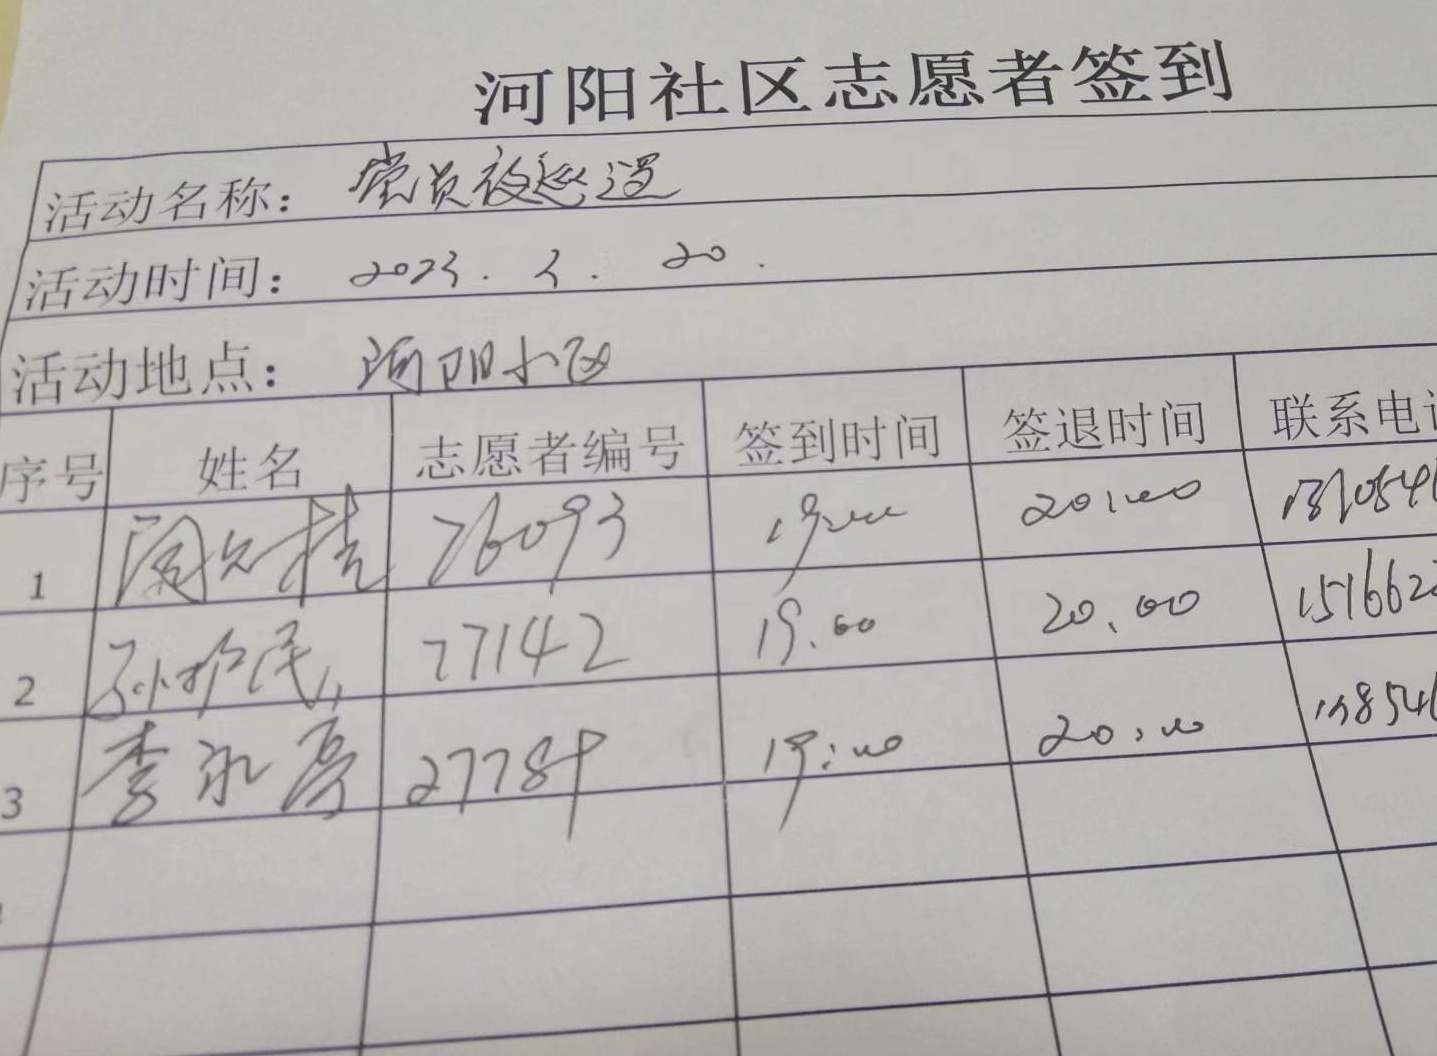 河阳社区志愿者签到
活动名称： 党员夜巡逻
活动时间： 2023. 2. 20.
活动地点： 河阳小区
序号 姓名 志愿者编号 签到时间 签退时间 联系电
1 76093 19:00 20:00
2 77142 19.00 20.00 151662
3 李永亮 27789 19:00 20:00